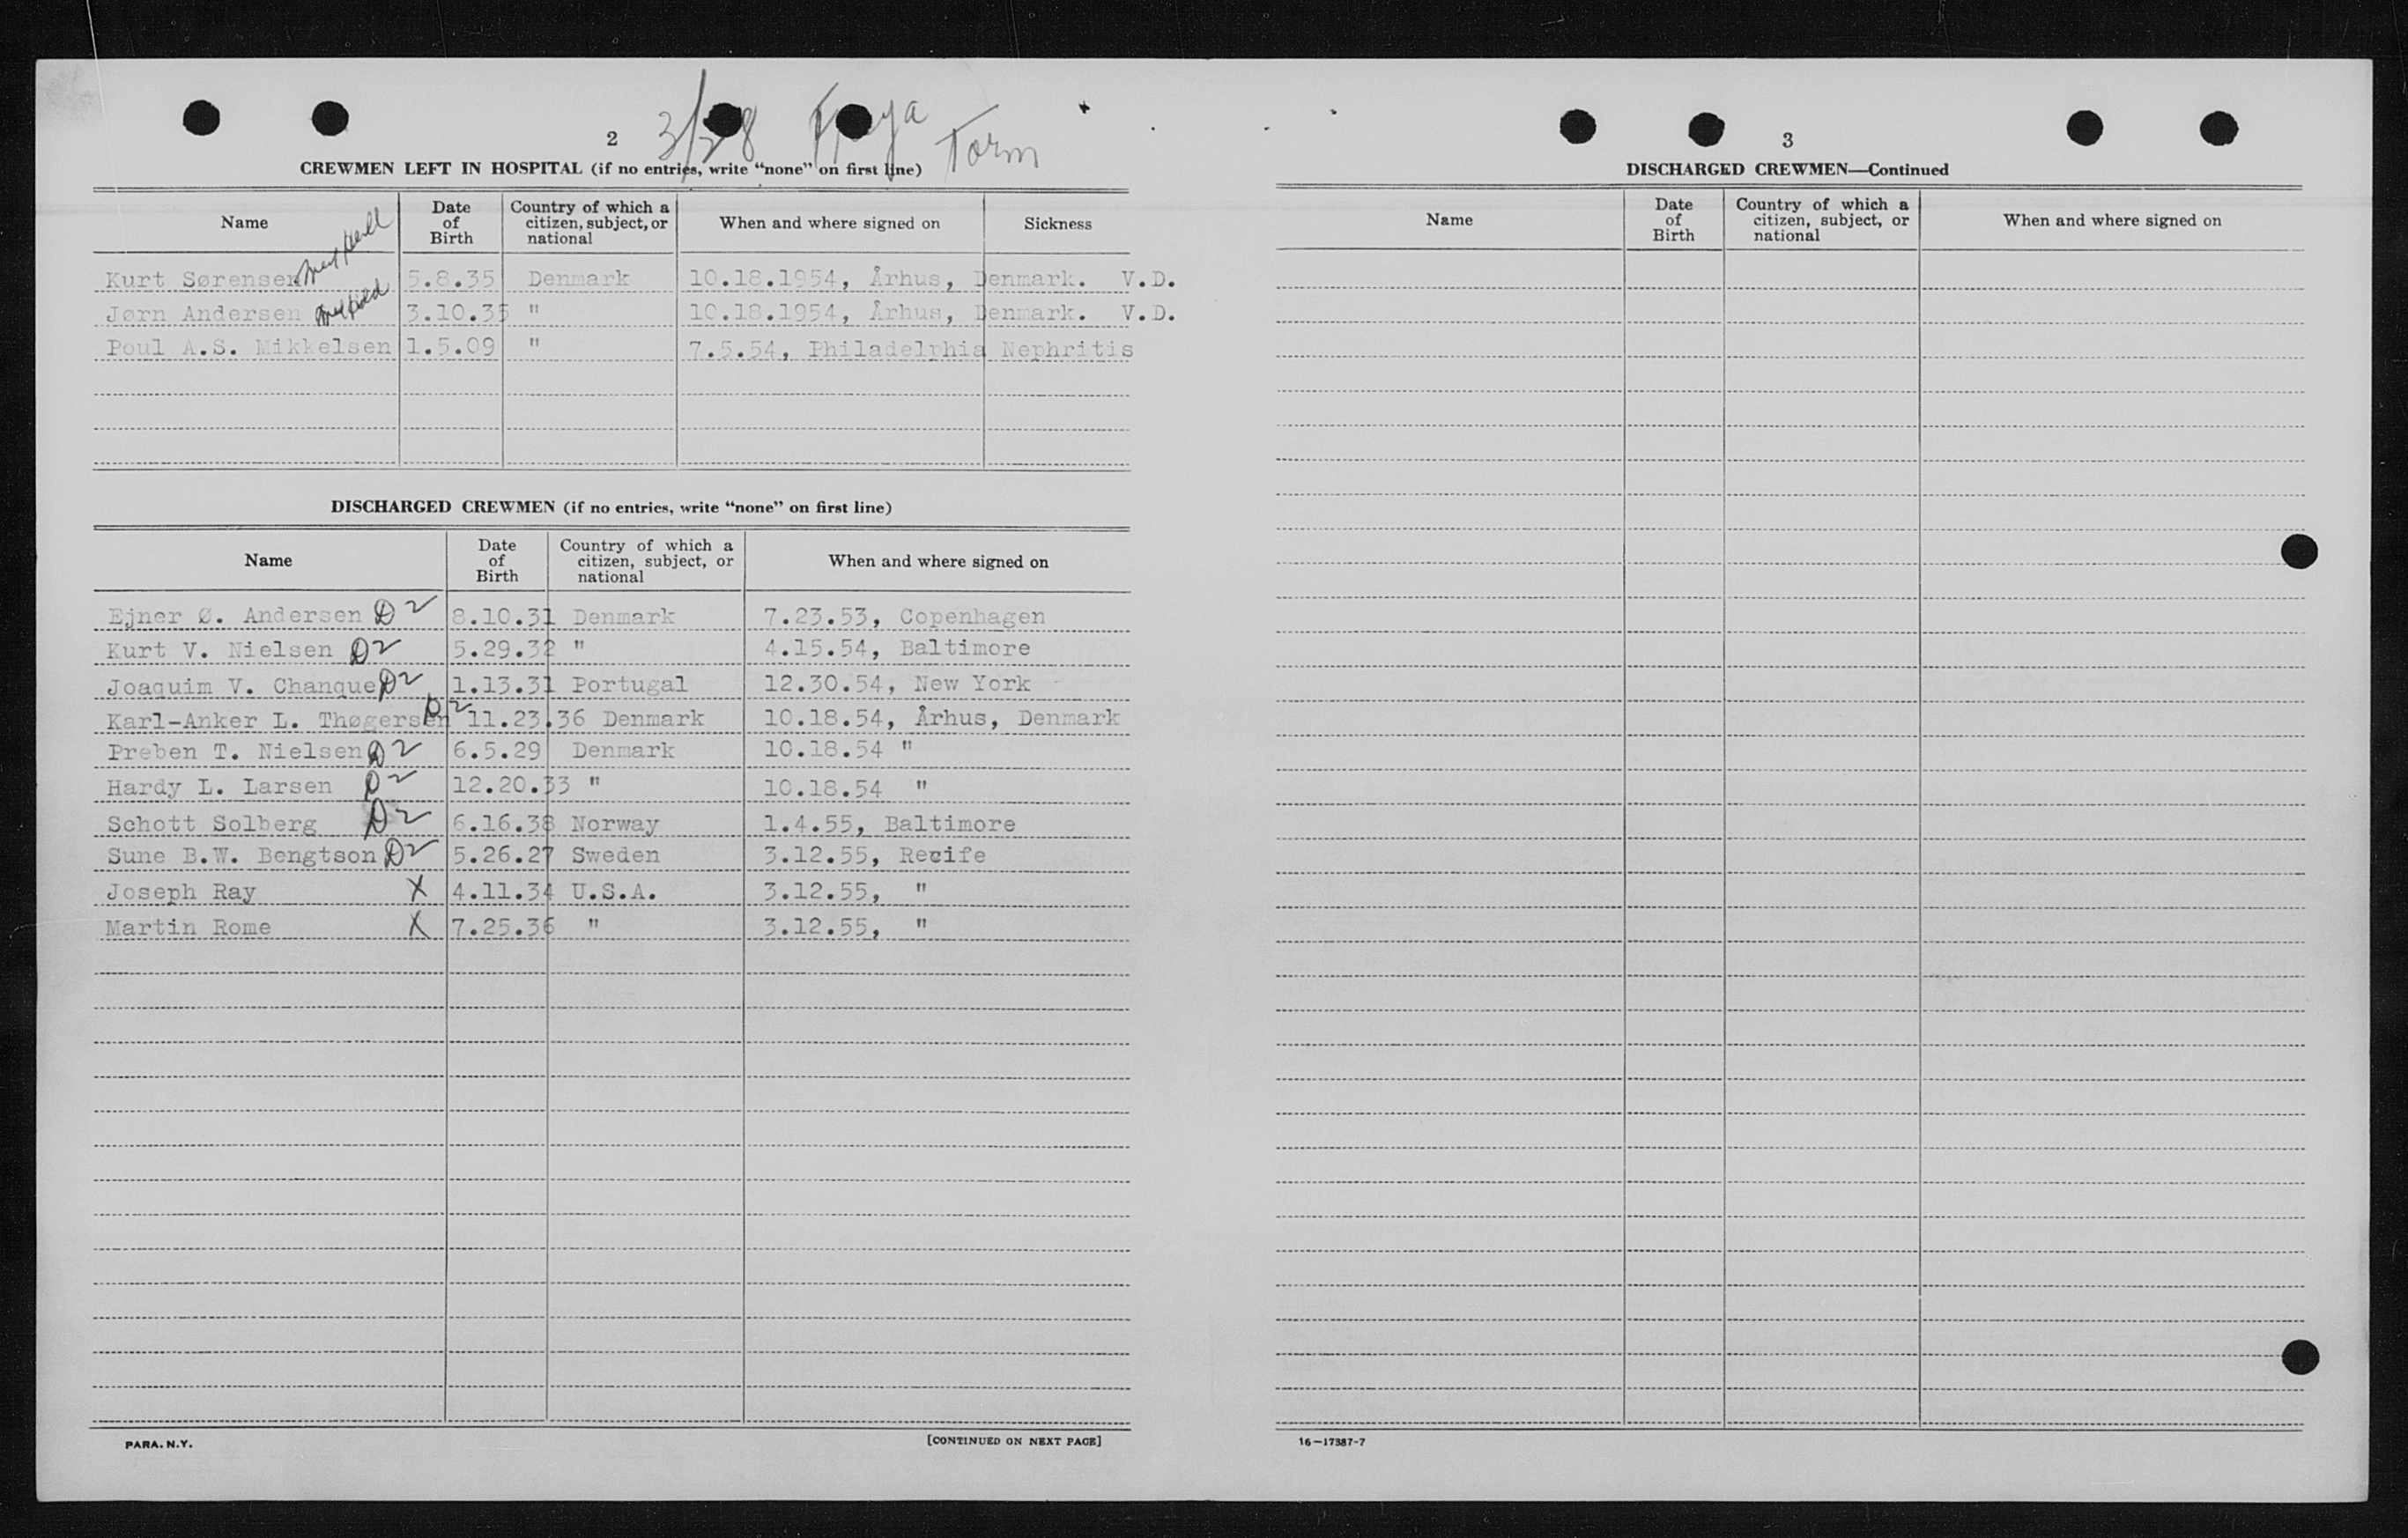 2
3/28 Freya
Torm
CREWMEN LEFT IN HOSPITAL (if no entries, write “none” on first line)
Name
Date of Birth
Country of which a citizen, subject, or national
When and where signed on
Sickness
Kurt Sørensen 5.8.35 Denmark 10.18.1954, Århus, Denmark. V.D.
Jørn Andersen 3.10.35 " 10.18.1954, Århus, Denmark. V.D.
Poul A.S. Mikkelsen 1.5.09 " 7.5.54, Philadelphia Nephritis
DISCHARGED CREWMEN (if no entries, write “none” on first line)
Name
Date of Birth
Country of which a citizen, subject, or national
When and where signed on
Ejner Ø. Andersen D2 8.10.31 Denmark 7.23.53, Copenhagen
Kurt V. Nielsen D2 5.29.32 " 4.15.54, Baltimore
Joaquim V. Chanque D2 1.13.31 Portugal 12.30.54, New York
Karl-Anker L. Thøgersen D2 11.23.36 Denmark 10.18.54, Århus, Denmark
Preben T. Nielsen D2 6.5.29 Denmark 10.18.54 "
Hardy L. Larsen D2 12.20.33 " 10.18.54 "
Schott Solberg D2 6.16.38 Norway 1.4.55, Baltimore
Sune B.W. Bengtson D2 5.26.27 Sweden 3.12.55, Recife
Joseph Ray X 4.11.34 U.S.A. 3.12.55, "
Martin Rome X 7.25.36 " 3.12.55, "
PARA. N.Y.
[CONTINUED ON NEXT PAGE]
3
DISCHARGED CREWMEN—Continued
Name
Date of Birth
Country of which a citizen, subject, or national
When and where signed on
16—17387-7